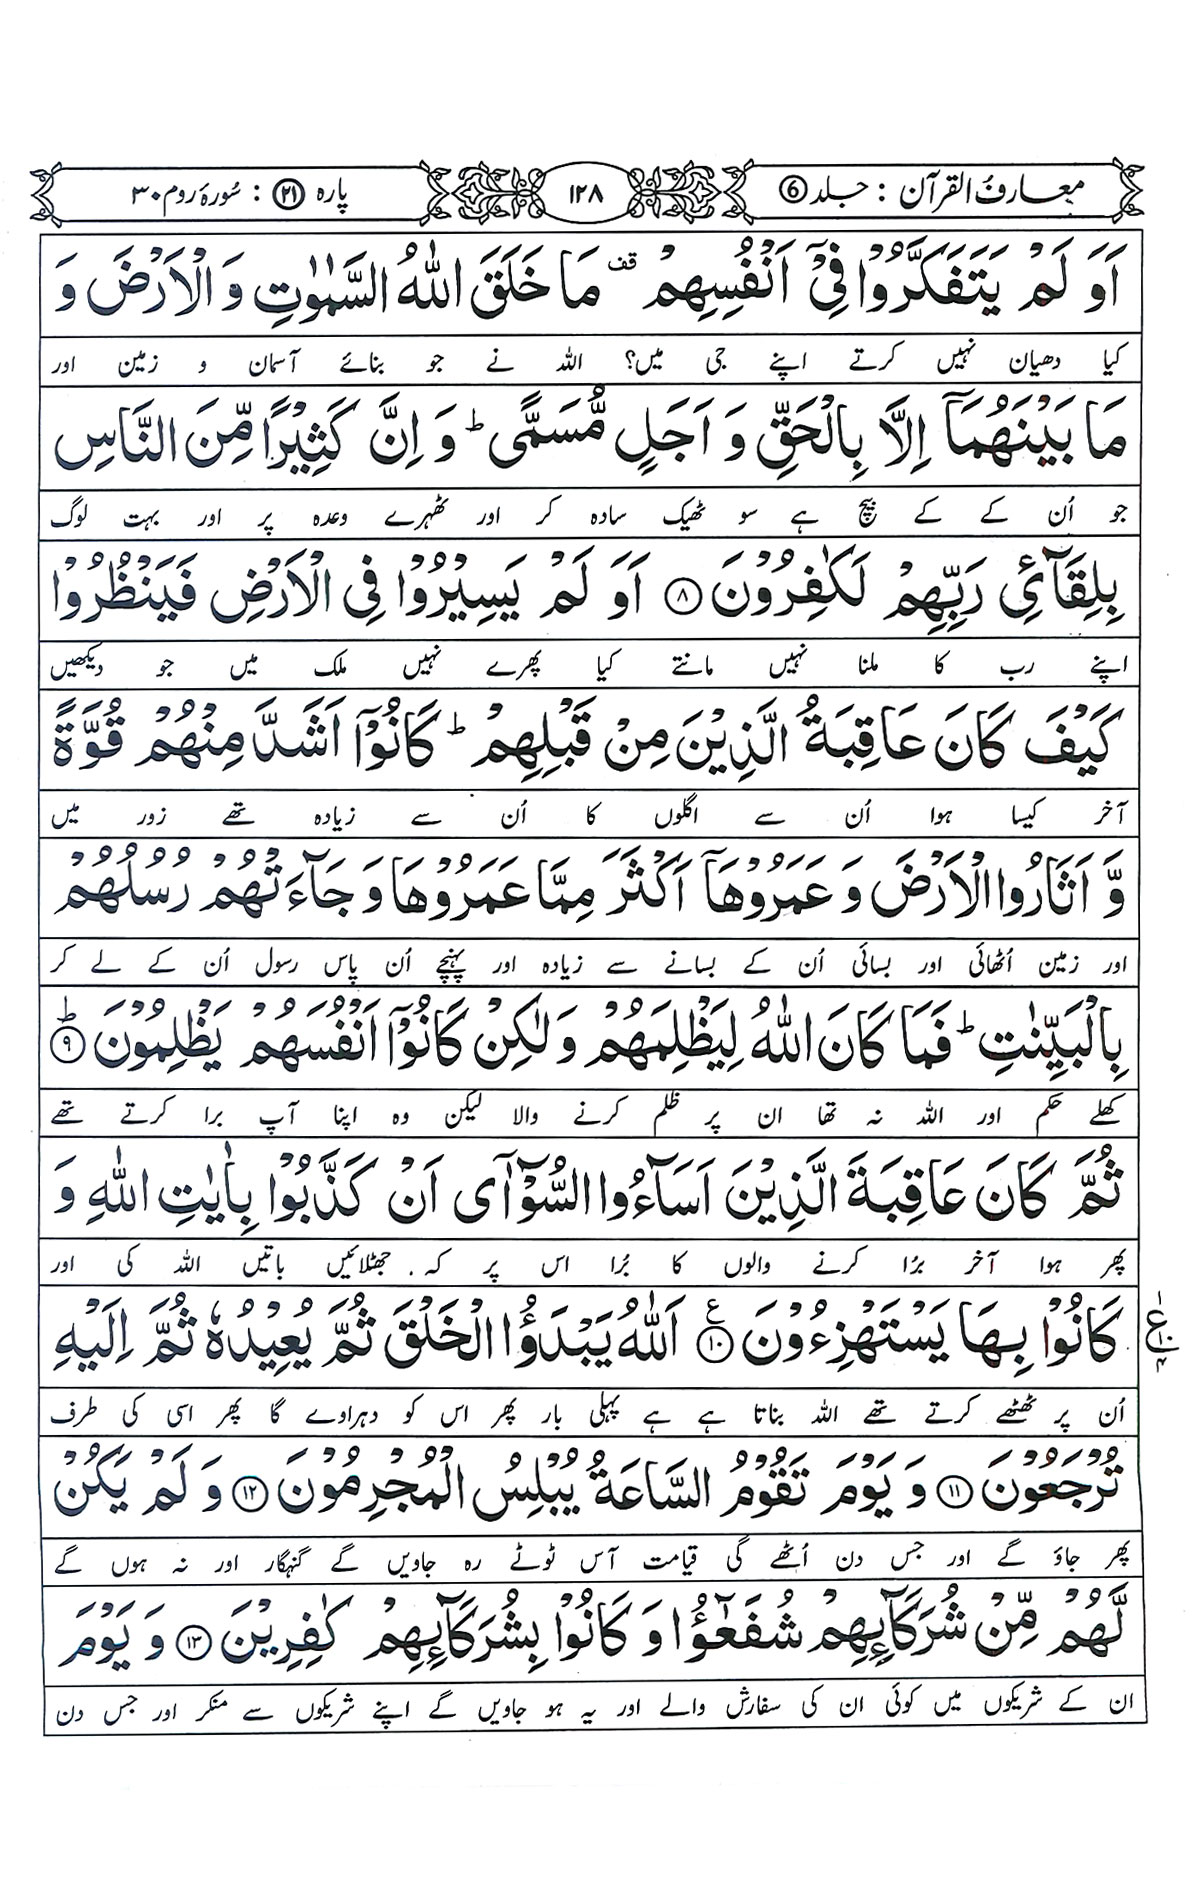 معارف القرآن : جلد ⑥
۱۲۸
پارہ ㉑ : سُورۂ روم ۳۰
اَوَ لَمْ یَتَفَكَّرُوْا فِیْۤ اَنْفُسِهِمْ ۫ قف مَا خَلَقَ اللّٰهُ السَّمٰوٰتِ وَ الْاَرْضَ وَ
کیا دھیان نہیں کرتے اپنے جی میں؟ اللہ نے جو بنائے آسمان و زمین اور
مَا بَیْنَهُمَاۤ اِلَّا بِالْحَقِّ وَ اَجَلٍ مُّسَمًّی ؕ وَ اِنَّ كَثِیْرًا مِّنَ النَّاسِ
جو اُن کے کے بیچ ہے سو ٹھیک سادہ کر اور ٹھہرے وعدہ پر اور بہت لوگ
بِلِقَآئِ رَبِّهِمْ لَكٰفِرُوْنَ ﴿۸﴾ اَوَ لَمْ یَسِیْرُوْا فِی الْاَرْضِ فَیَنْظُرُوْا
اپنے رب کا ملنا نہیں مانتے کیا پھرے نہیں ملک میں جو دیکھیں
كَیْفَ كَانَ عَاقِبَةُ الَّذِیْنَ مِنْ قَبْلِهِمْ ؕ كَانُوْۤا اَشَدَّ مِنْهُمْ قُوَّةً
آخر کیسا ہوا اُن سے اگلوں کا اُن سے زیادہ تھے زور میں
وَّ اَثَارُوا الْاَرْضَ وَ عَمَرُوْهَاۤ اَكْثَرَ مِمَّا عَمَرُوْهَا وَ جَآءَتْهُمْ رُسُلُهُمْ
اور زمین اُٹھائی اور بسائی اُن کے بسانے سے زیادہ اور پہنچے اُن پاس رسول اُن کے لے کر
بِالْبَیِّنٰتِ ؕ فَمَا كَانَ اللّٰهُ لِیَظْلِمَهُمْ وَ لٰكِنْ كَانُوْۤا اَنْفُسَهُمْ یَظْلِمُوْنَ ؕ﴿۹﴾
کھلے حکم اور اللہ نہ تھا ان پر ظلم کرنے والا لیکن وہ اپنا آپ برا کرتے تھے
ثُمَّ كَانَ عَاقِبَةَ الَّذِیْنَ اَسَآءُوا السُّوْٓاٰی اَنْ كَذَّبُوْا بِاٰیٰتِ اللّٰهِ وَ
پھر ہوا آخر بڑا کرنے والوں کا بُرا اس پر کہ جھٹلائیں باتیں اللہ کی اور
كَانُوْا بِهَا یَسْتَهْزِءُوْنَ ﴿۱۰﴾ ع اَللّٰهُ یَبْدَؤُا الْخَلْقَ ثُمَّ یُعِیْدُهٗ ثُمَّ اِلَیْهِ
اُن پر ٹھٹھے کرتے تھے اللہ بناتا ہے ہے پہلی بار پھر اس کو دہراوے گا پھر اسی کی طرف
تُرْجَعُوْنَ ﴿۱۱﴾ وَ یَوْمَ تَقُوْمُ السَّاعَةُ یُبْلِسُ الْمُجْرِمُوْنَ ﴿۱۲﴾ وَ لَمْ یَكُنْ
پھر جاؤ گے اور جس دن اُٹھے گی قیامت آس ٹوٹے رہ جاویں گے گنہگار اور نہ ہوں گے
لَّهُمْ مِّنْ شُرَكَآىِٕهِمْ شُفَعٰٓؤُا وَ كَانُوْا بِشُرَكَآىِٕهِمْ كٰفِرِیْنَ ﴿۱۳﴾ وَ یَوْمَ
ان کے شریکوں میں کوئی ان کی سفارش والے اور یہ ہو جاویں گے اپنے شریکوں سے منکر اور جس دن